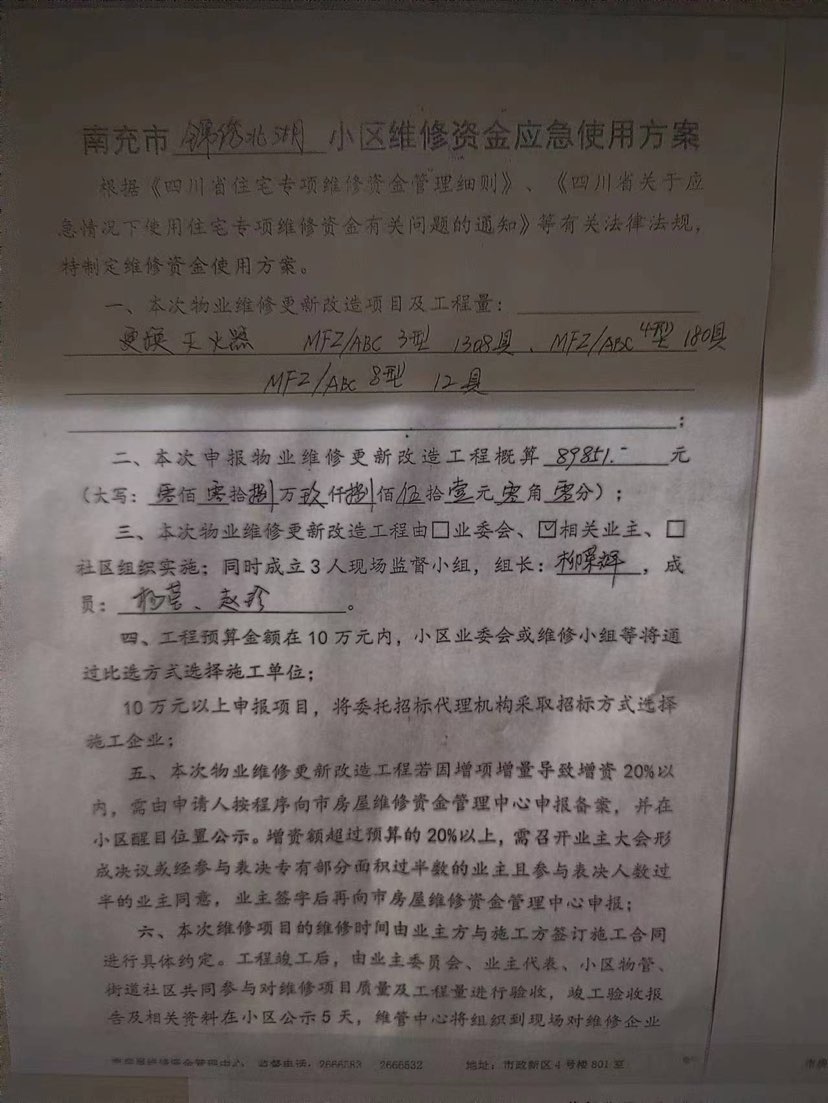 南充市 锦绣北湖 小区维修资金应急使用方案
根据《四川省住宅专项维修资金管理细则》、《四川省关于应
急情况下使用住宅专项维修资金有关问题的通知》等有关法律法规，
特制定维修资金使用方案。
一、本次物业维修更新改造项目及工程量：
更换灭火器 MFZ/ABC 3型 1308具、MFZ/ABC 4型 180具
MFZ/ABC 8型 12具
；
二、本次申报物业维修更新改造工程概算 89851.- 元
（大写：零佰零拾捌万玖仟捌佰伍拾壹元零角零分）；
三、本次物业维修更新改造工程由□业委会、☑相关业主、□
社区组织实施；同时成立3人现场监督小组，组长：柳荣辉，成
员：杨莹、赵珍。
四、工程预算金额在10万元内，小区业委会或维修小组等将通
过比选方式选择施工单位；
10万元以上申报项目，将委托招标代理机构采取招标方式选择
施工企业；
五、本次物业维修更新改造工程若因增项增量导致增资20%以
内，需由申请人按程序向市房屋维修资金管理中心申报备案，并在
小区醒目位置公示。增资额超过预算的20%以上，需召开业主大会形
成决议或经参与表决专有部分面积过半数的业主且参与表决人数过
半的业主同意，业主签字后再向市房屋维修资金管理中心申报；
六、本次维修项目的维修时间由业主方与施工方签订施工合同
进行具体约定。工程竣工后，由业主委员会、业主代表、小区物管、
街道社区共同参与对维修项目质量及工程量进行验收，竣工验收报
告及相关资料在小区公示5天，维管中心将组织到现场对维修企业
市房屋维修资金管理中心 监督电话：2666583 2666532 地址：市政新区4号楼801室